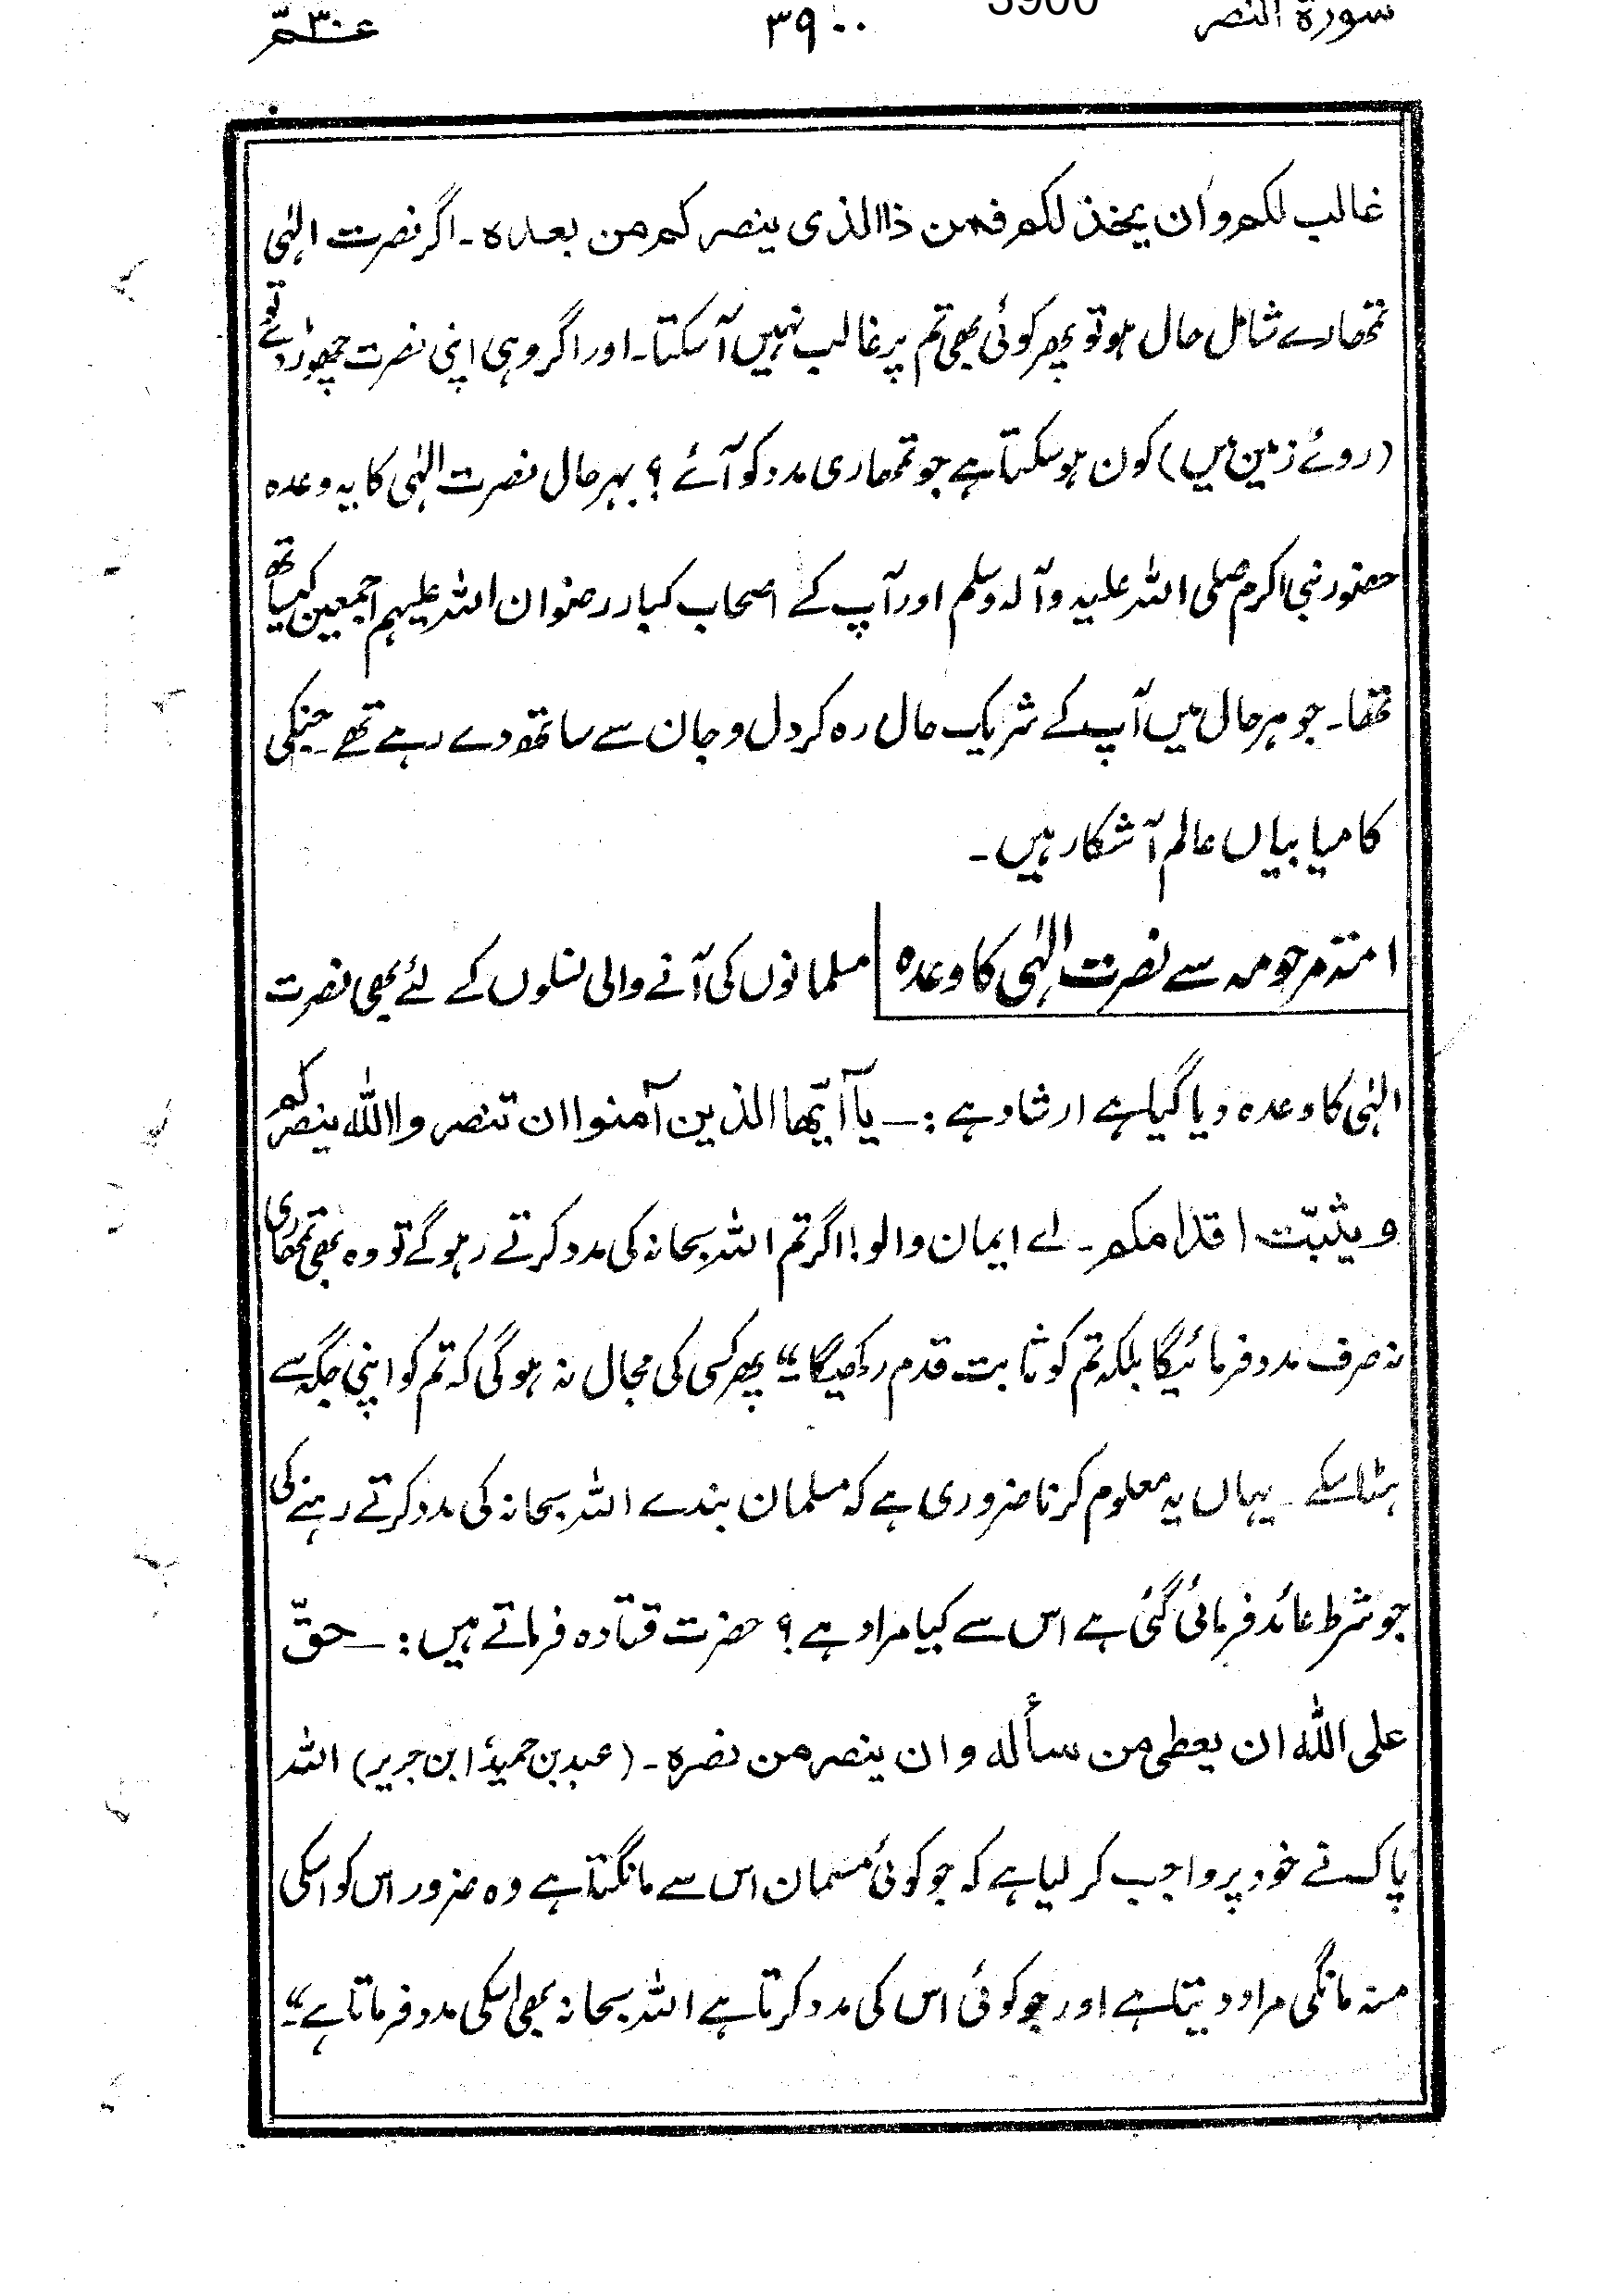 سورة النصر ۳۹۰۰ 3900 عمّ ۳۰
غالب لکم وان یخذ لکم فمن ذا الذی ینصر کم من بعدہ ۔ اگر نصرت الٰہی
تمھارے شامل حال ہو تو پھر کوئی بھی تم پر غالب نہیں آسکتا۔ اور اگر وہی اپنی نصرت چھوڑ دے تو
(روئے زمین میں) کون ہو سکتا ہے جو تمھاری مدد کو آئے ؟ بہر حال نصرت الٰہی کا یہ وعدہ
حضور نبی اکرم صلی اللہ علیہ وآلہ وسلم اور آپ کے اصحاب کبار رضوان اللہ علیہم اجمعین کیساتھ
تھا۔ جو ہر حال میں آپ کے شریک حال رہ کر دل و جان سے ساتھ دے رہے تھے ۔ جنکی
کامیابیاں عالم آشکار ہیں ۔
امتہ مرحومہ سے نصرت الٰہی کا وعدہ مسلمانوں کی آنے والی نسلوں کے لئے بھی نصرت
الٰہی کا وعدہ دیا گیا ہے ارشاد ہے :۔ یآ ایّھا الذین آمنوا ان تنصروا اللہ ینصرکم
ویثبّت اقدامکم ۔ اے ایمان والو! اگر تم اللہ سبحانہ کی مدد کرتے رہو گے تو وہ بھی تمھاری
نہ صرف مدد فرمائیگا بلکہ تم کو ثابت قدم رکھیگا۔“ پھر کسی کی مجال نہ ہو گی کہ تم کو اپنی جگہ سے
ہٹا سکے ۔ یہاں یہ معلوم کرنا ضروری ہے کہ مسلمان بندے اللہ سبحانہ کی مدد کرتے رہنے کی
جو شرط عائد فرمائی گئی ہے اس سے کیا مراد ہے ؟ حضرت قتادہ فرماتے ہیں :۔ حقّ
علی اللہ ان یعطی من سألہ و ان ینصر من نصرہ ۔ (عبد بن حمید، ابن جریر) اللہ
پاک نے خود پر واجب کر لیا ہے کہ جو کوئی مسلمان اس سے مانگتا ہے وہ ضرور اس کو اسکی
منہ مانگی مراد دیتا ہے اور جو کوئی اس کی مدد کرتا ہے اللہ سبحانہ بھی اسکی مدد فرماتا ہے“۔